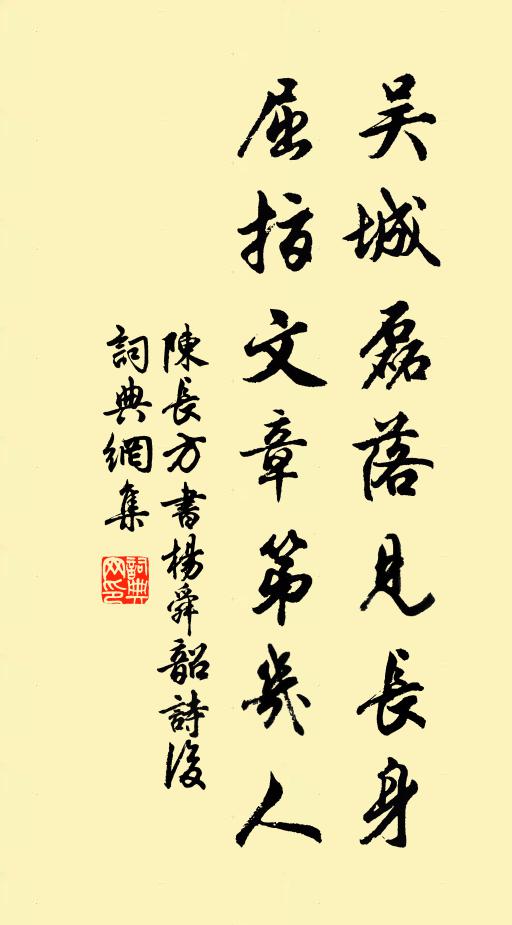 吴城磊落見長身
屈指文章第幾人
陳長方書楊舜韶詩後
詞典網集
詞典网印